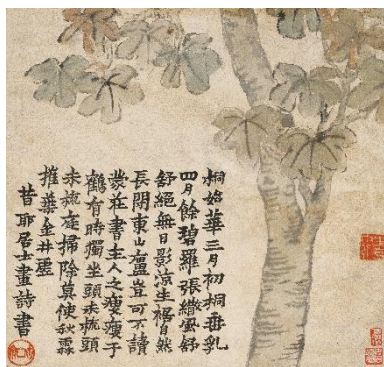 桐始華三月初桐垂乳
四月餘碧羅張繖風舒
舒絕無日影涼生裾自然
長閉東山廬豈可不讀
蒙莊書主人之瘦瘦于
鶴有時獨坐頭未梳頭
未梳庭掃除莫使秋霖
摧葉金井虛
昔耶居士畫詩書